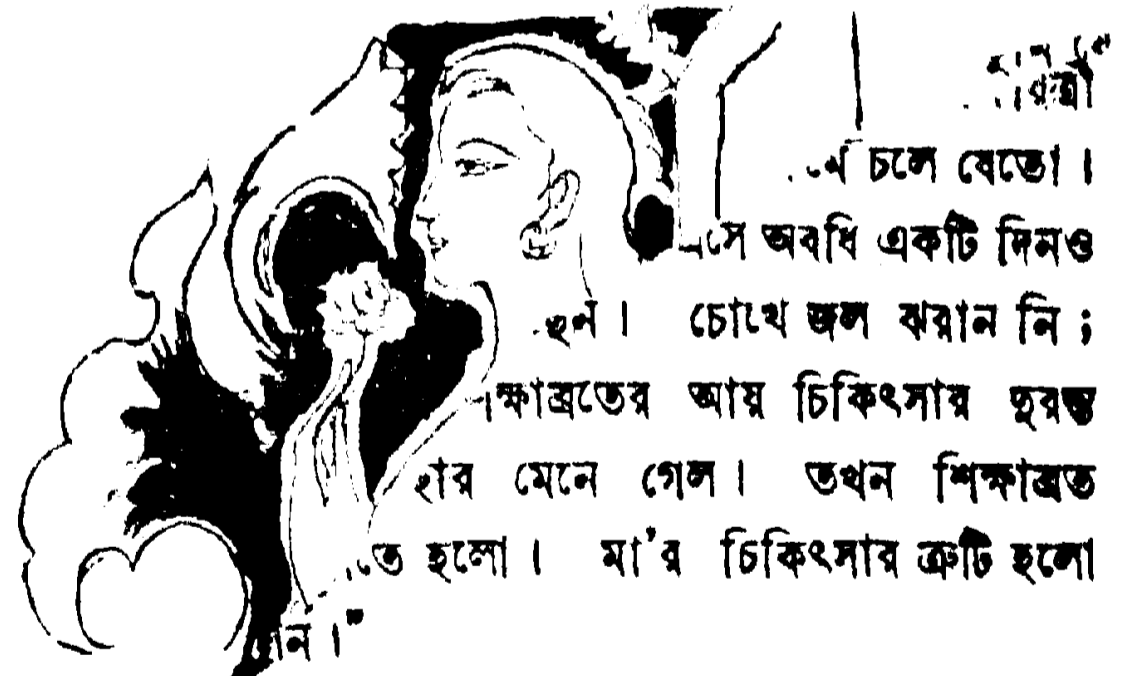 চলে যেতো।
অবধি একটি দিনও
চোখে জল ঝরান নি ;
আয় চিকিৎসার দুরন্ত
হার মেনে গেল। তখন শিক্ষাব্রত
হলো। মা'র চিকিৎসার ত্রুটি হলো